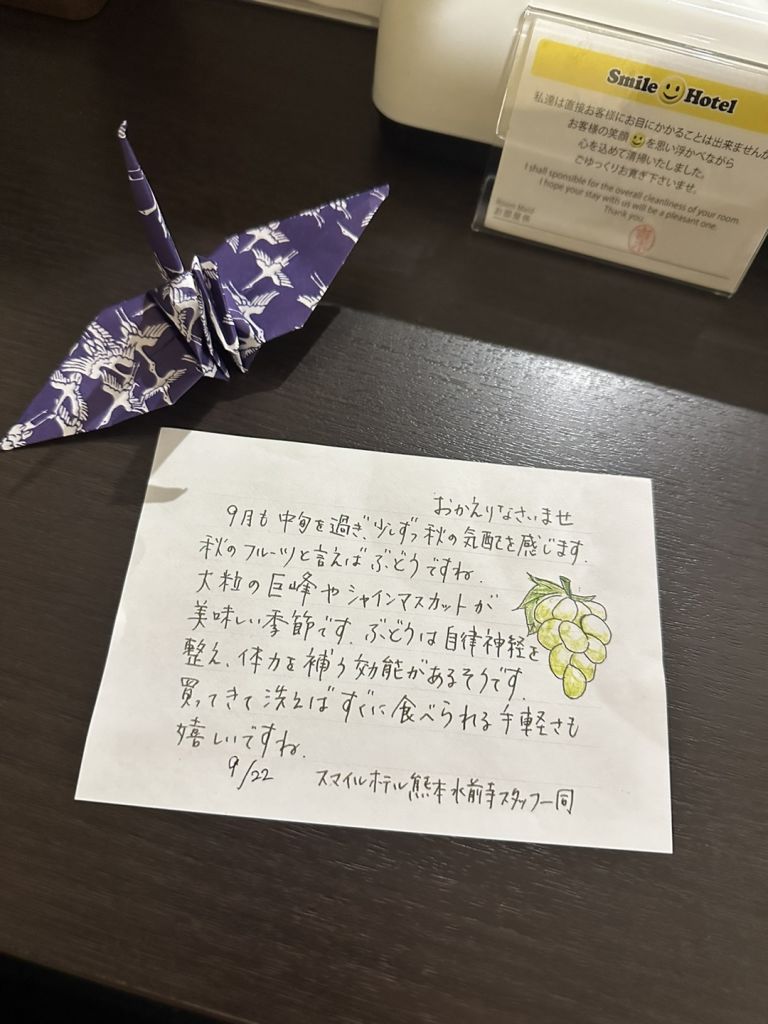 Smile Hotel
私達は直接お客様にお目にかかることは出来ませんが
お客様の笑顔を思い浮かべながら
心を込めて清掃いたしました。
ごゆっくりお寛ぎ下さいませ。
I shall sponsible for the overall cleanliness of your room.
I hope your stay with us will be a pleasant one.
Thank you.
Room Maid
お部屋係
おかえりなさいませ
9月も中旬を過ぎ、少しずつ秋の気配を感じます。
秋のフルーツと言えばぶどうですね。
大粒の巨峰やシャインマスカットが
美味しい季節です。ぶどうは自律神経を
整え、体力を補う効能があるそうです。
買ってきて洗えばすぐに食べられる手軽さも
嬉しいですね。
9/22 スマイルホテル熊本水前寺スタッフ一同